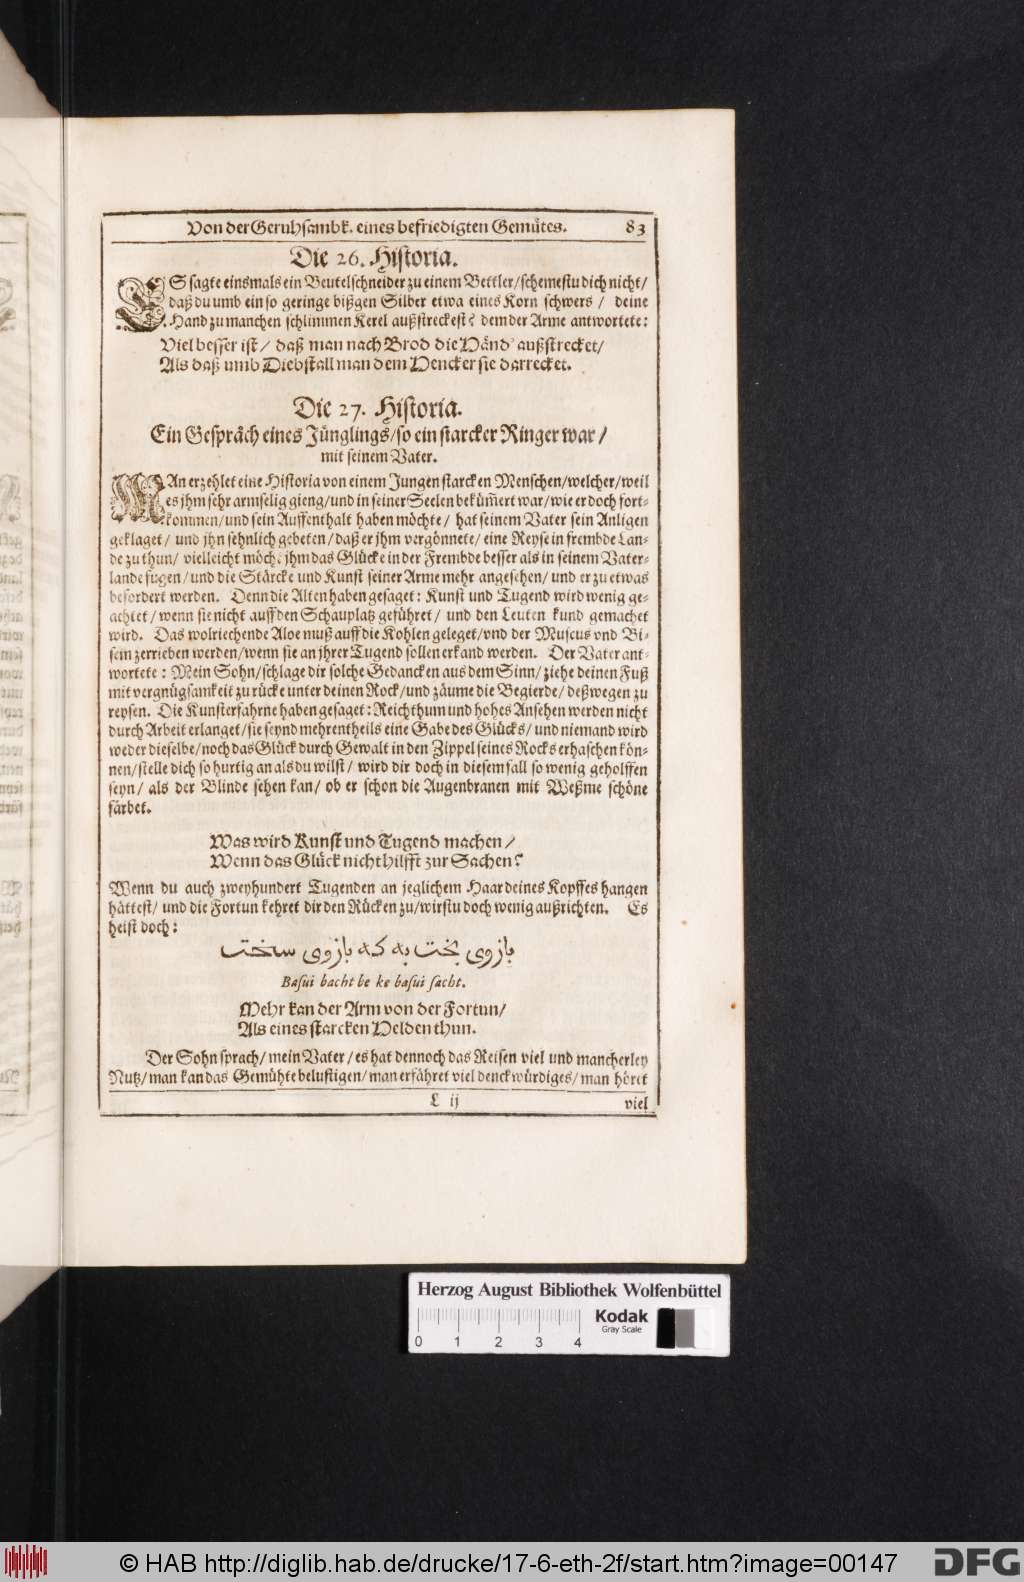 Von der Geruhsambk. eines befriedigten Gemütes. 83
Die 26. Historia.
ES sagte einsmals ein Beutelschneider zu einem Bettler/ schemestu dich nicht/
daß du umb ein so geringe bißgen Silber etwa eines Korn schwers / deine
Hand zu manchen schlimmen Kerel außstreckest? dem der Arme antwortete:
Viel besser ist/ daß man nach Brod die Händ' außstrecket/
Als daß umb Diebstall man dem Hencker sie darrecket.
Die 27. Historia.
Ein Gespräch eines Jünglings/ so ein starcker Ringer war/
mit seinem Vater.
MAn erzehlet eine Historia von einem Jungen starcken Menschen/ welcher/ weil
es jhm sehr armselig gieng/ und in seiner Seelen beküm̃ert war/ wie er doch fort-
kommen/ und sein Auffenthalt haben möchte / hat seinem Vater sein Anligen
geklaget/ und jhn sehnlich gebeten/ daß er jhm vergönnete/ eine Reyse in frembde Lan-
de zu thun/ vielleicht möch: jhm das Glücke in der Frembde besser als in seinem Vater-
lande fugen/ und die Stärcke und Kunst seiner Arme mehr angesehen/ und er zu etwas
befordert werden. Denn die Alten haben gesaget: Kunst und Tugend wird wenig ge-
achtet/ wenn sie nicht auff den Schauplatz geführet/ und den Leuten kund gemachet
wird. Das wolriechende Aloe muß auff die Kohlen geleget/ vnd der Muscus vnd Bi-
sem zerrieben werden/ wenn sie an jhrer Tugend sollen erkand werden. Der Vater ant-
wortete: Mein Sohn/ schlage dir solche Gedancken aus dem Sinn/ ziehe deinen Fuß
mit vergnügsamkeit zu rücke unter deinen Rock/ und zäume die Begierde/ deßwegen zu
reysen. Die Kunsterfahrne haben gesaget: Reichthum und hohes Ansehen werden nicht
durch Arbeit erlanget/ sie seynd mehrentheils eine Gabe des Glücks/ und niemand wird
weder dieselbe/ noch das Glück durch Gewalt in den Zippel seines Rocks erhaschen kön-
nen/ stelle dich so hurtig an als du wilst/ wird dir doch in diesem fall so wenig geholffen
seyn/ als der Blinde sehen kan/ ob er schon die Augenbranen mit Weßme schöne
färbet.
Was wird Kunst und Tugend machen/
Wenn das Glück nicht hilfft zur Sachen?
Wenn du auch zweyhundert Tugenden an jeglichem Haar deines Kopffes hangen
hättest/ und die Fortun kehret dir den Rücken zu/ wirstu doch wenig außrichten. Es
heist doch:
بازوی بخت به که بازوی سخت
Basui bacht be ke basui sacht.
Mehr kan der Arm von der Fortun/
Als eines starcken Helden thun.
Der Sohn sprach/ mein Vater/ es hat dennoch das Reisen viel und mancherley
Nutz/ man kan das Gemühte belustigen/ man erfähret viel denckwürdiges/ man höret
L ij viel
Herzog August Bibliothek Wolfenbüttel
Kodak
Gray Scale
0 1 2 3 4
© HAB http://diglib.hab.de/drucke/17-6-eth-2f/start.htm?image=00147
DFG